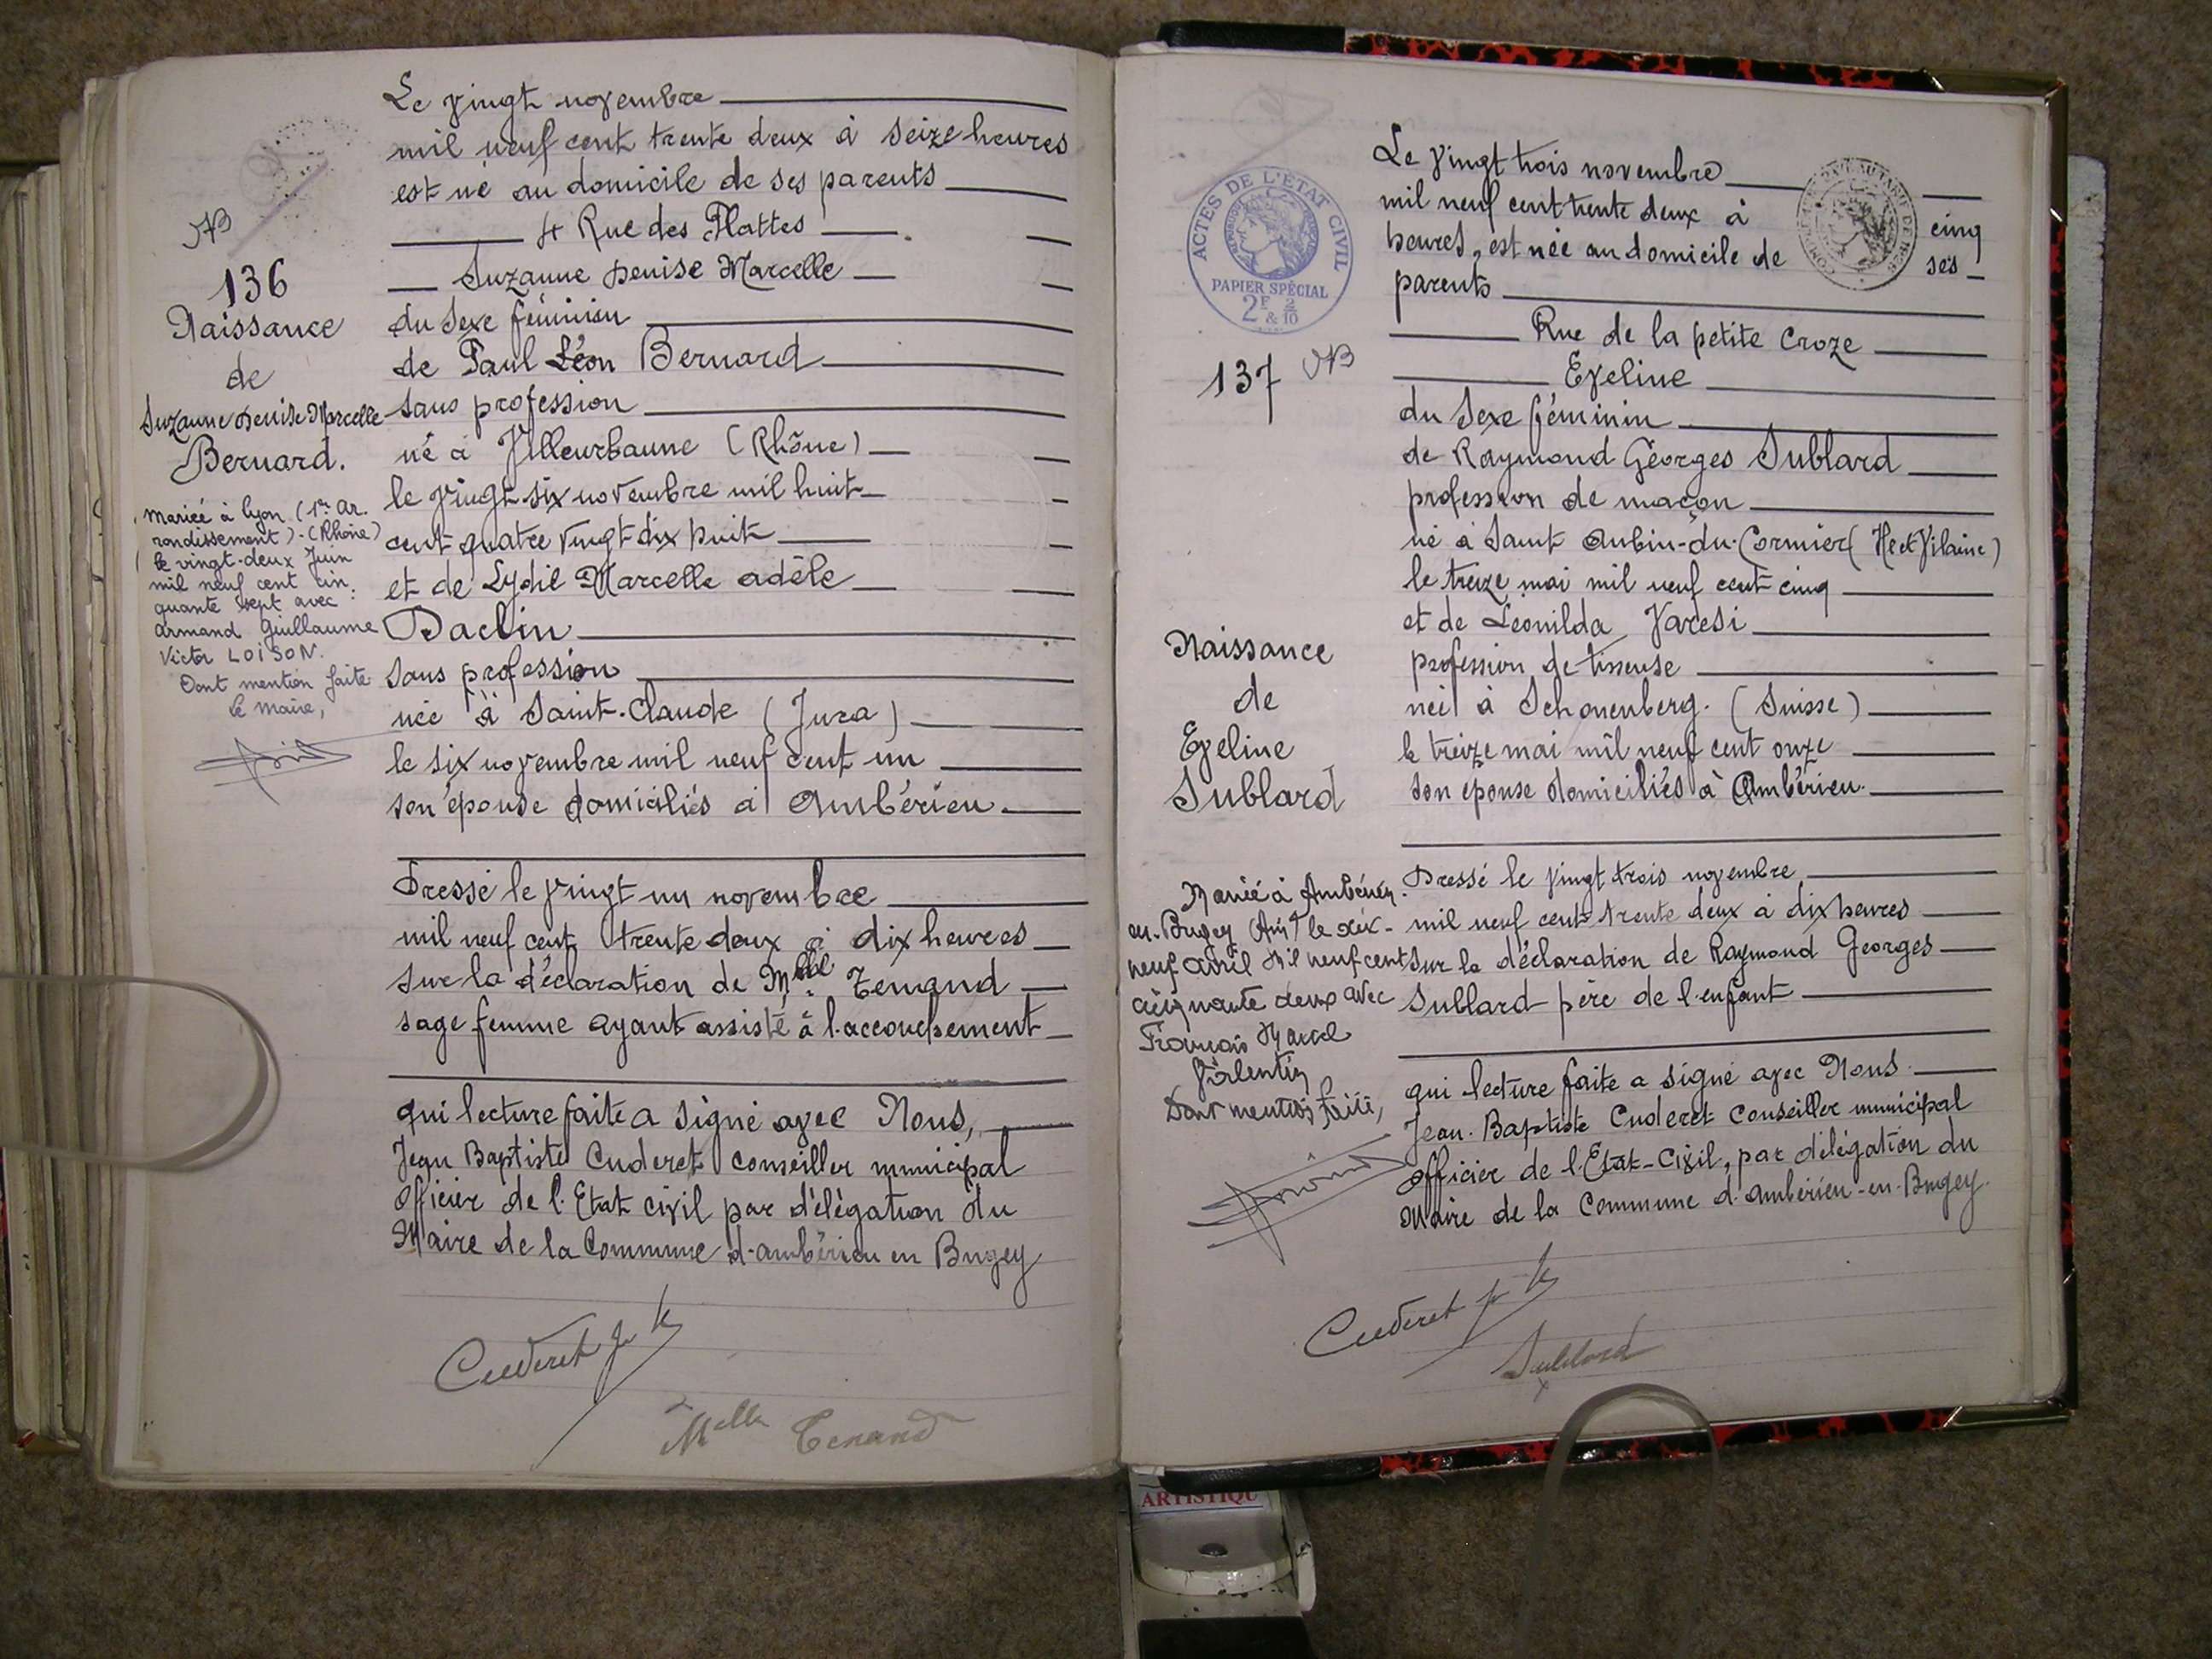 NB
136
Naissance
de
Suzanne Denise Marcelle
Bernard.
Mariée à Lyon (1er Ar.
rondissement)-(Rhône)
le vingt-deux Juin
mil neuf cent cin.
quante sept avec :
Armand Guillaume
Victor LOISON.
Dont mention faite
Le Maire,
Le vingt novembre
mil neuf cent trente deux à seize heures
est né au domicile de ses parents
4 Rue des Plattes
Suzanne Denise Marcelle
du sexe féminin
de Paul Léon Bernard
sans profession
né à Villeurbanne (Rhône)
le vingt-six novembre mil huit
cent quatre vingt dix huit
et de Lydie Marcelle adèle
Daclin
sans profession
née à Saint-Claude (Jura)
le six novembre mil neuf cent un
son épouse domiciliés à Ambérieu.
Dressé le vingt un novembre
mil neuf cent trente deux à dix heures
sur la déclaration de Melle Tenand
sage femme ayant assisté à l'accouchement
qui lecture faite a signé avec Nous,
Jean Baptiste Cuderet conseiller municipal
Officier de l'Etat civil par délégation du
Maire de la Commune d'ambérieu en Bugey
Cuderet
Melle Tenand
ACTES DE L'ÉTAT CIVIL
PAPIER SPÉCIAL
2F & 2/10
137 NB
Naissance
de
Eveline
Sublard
Mariée à Ambérieu.
en-Bugey (Ain) le dix-
neuf avril mil neuf cent
cinquante deux avec
François Marcel
Valentin
Dont mention faite,
Le vingt trois novembre
mil neuf cent trente deux à cinq
heures, est née au domicile de ses
parents
Rue de la petite Croze
Eveline
du sexe féminin
de Raymond Georges Sublard
profession de maçon
né à Saint Aubin-du-Cormier (Ille et Vilaine)
le treize mai mil neuf cent cinq
et de Léonilda Varesi
profession de tisseuse
née à Schonenberg. (Suisse)
le treize mai mil neuf cent onze
son épouse domiciliés à Ambérieu.
Dressé le vingt trois novembre
mil neuf cent trente deux à dix heures
sur la déclaration de Raymond Georges
Sublard père de l'enfant
qui lecture faite a signé avec Nous
Jean-Baptiste Cuderet Conseiller municipal
Officier de l'Etat-Civil, par délégation du
Maire de la Commune d'Ambérieu-en-Bugey.
Cuderet
Sublard
ARTISTIQU